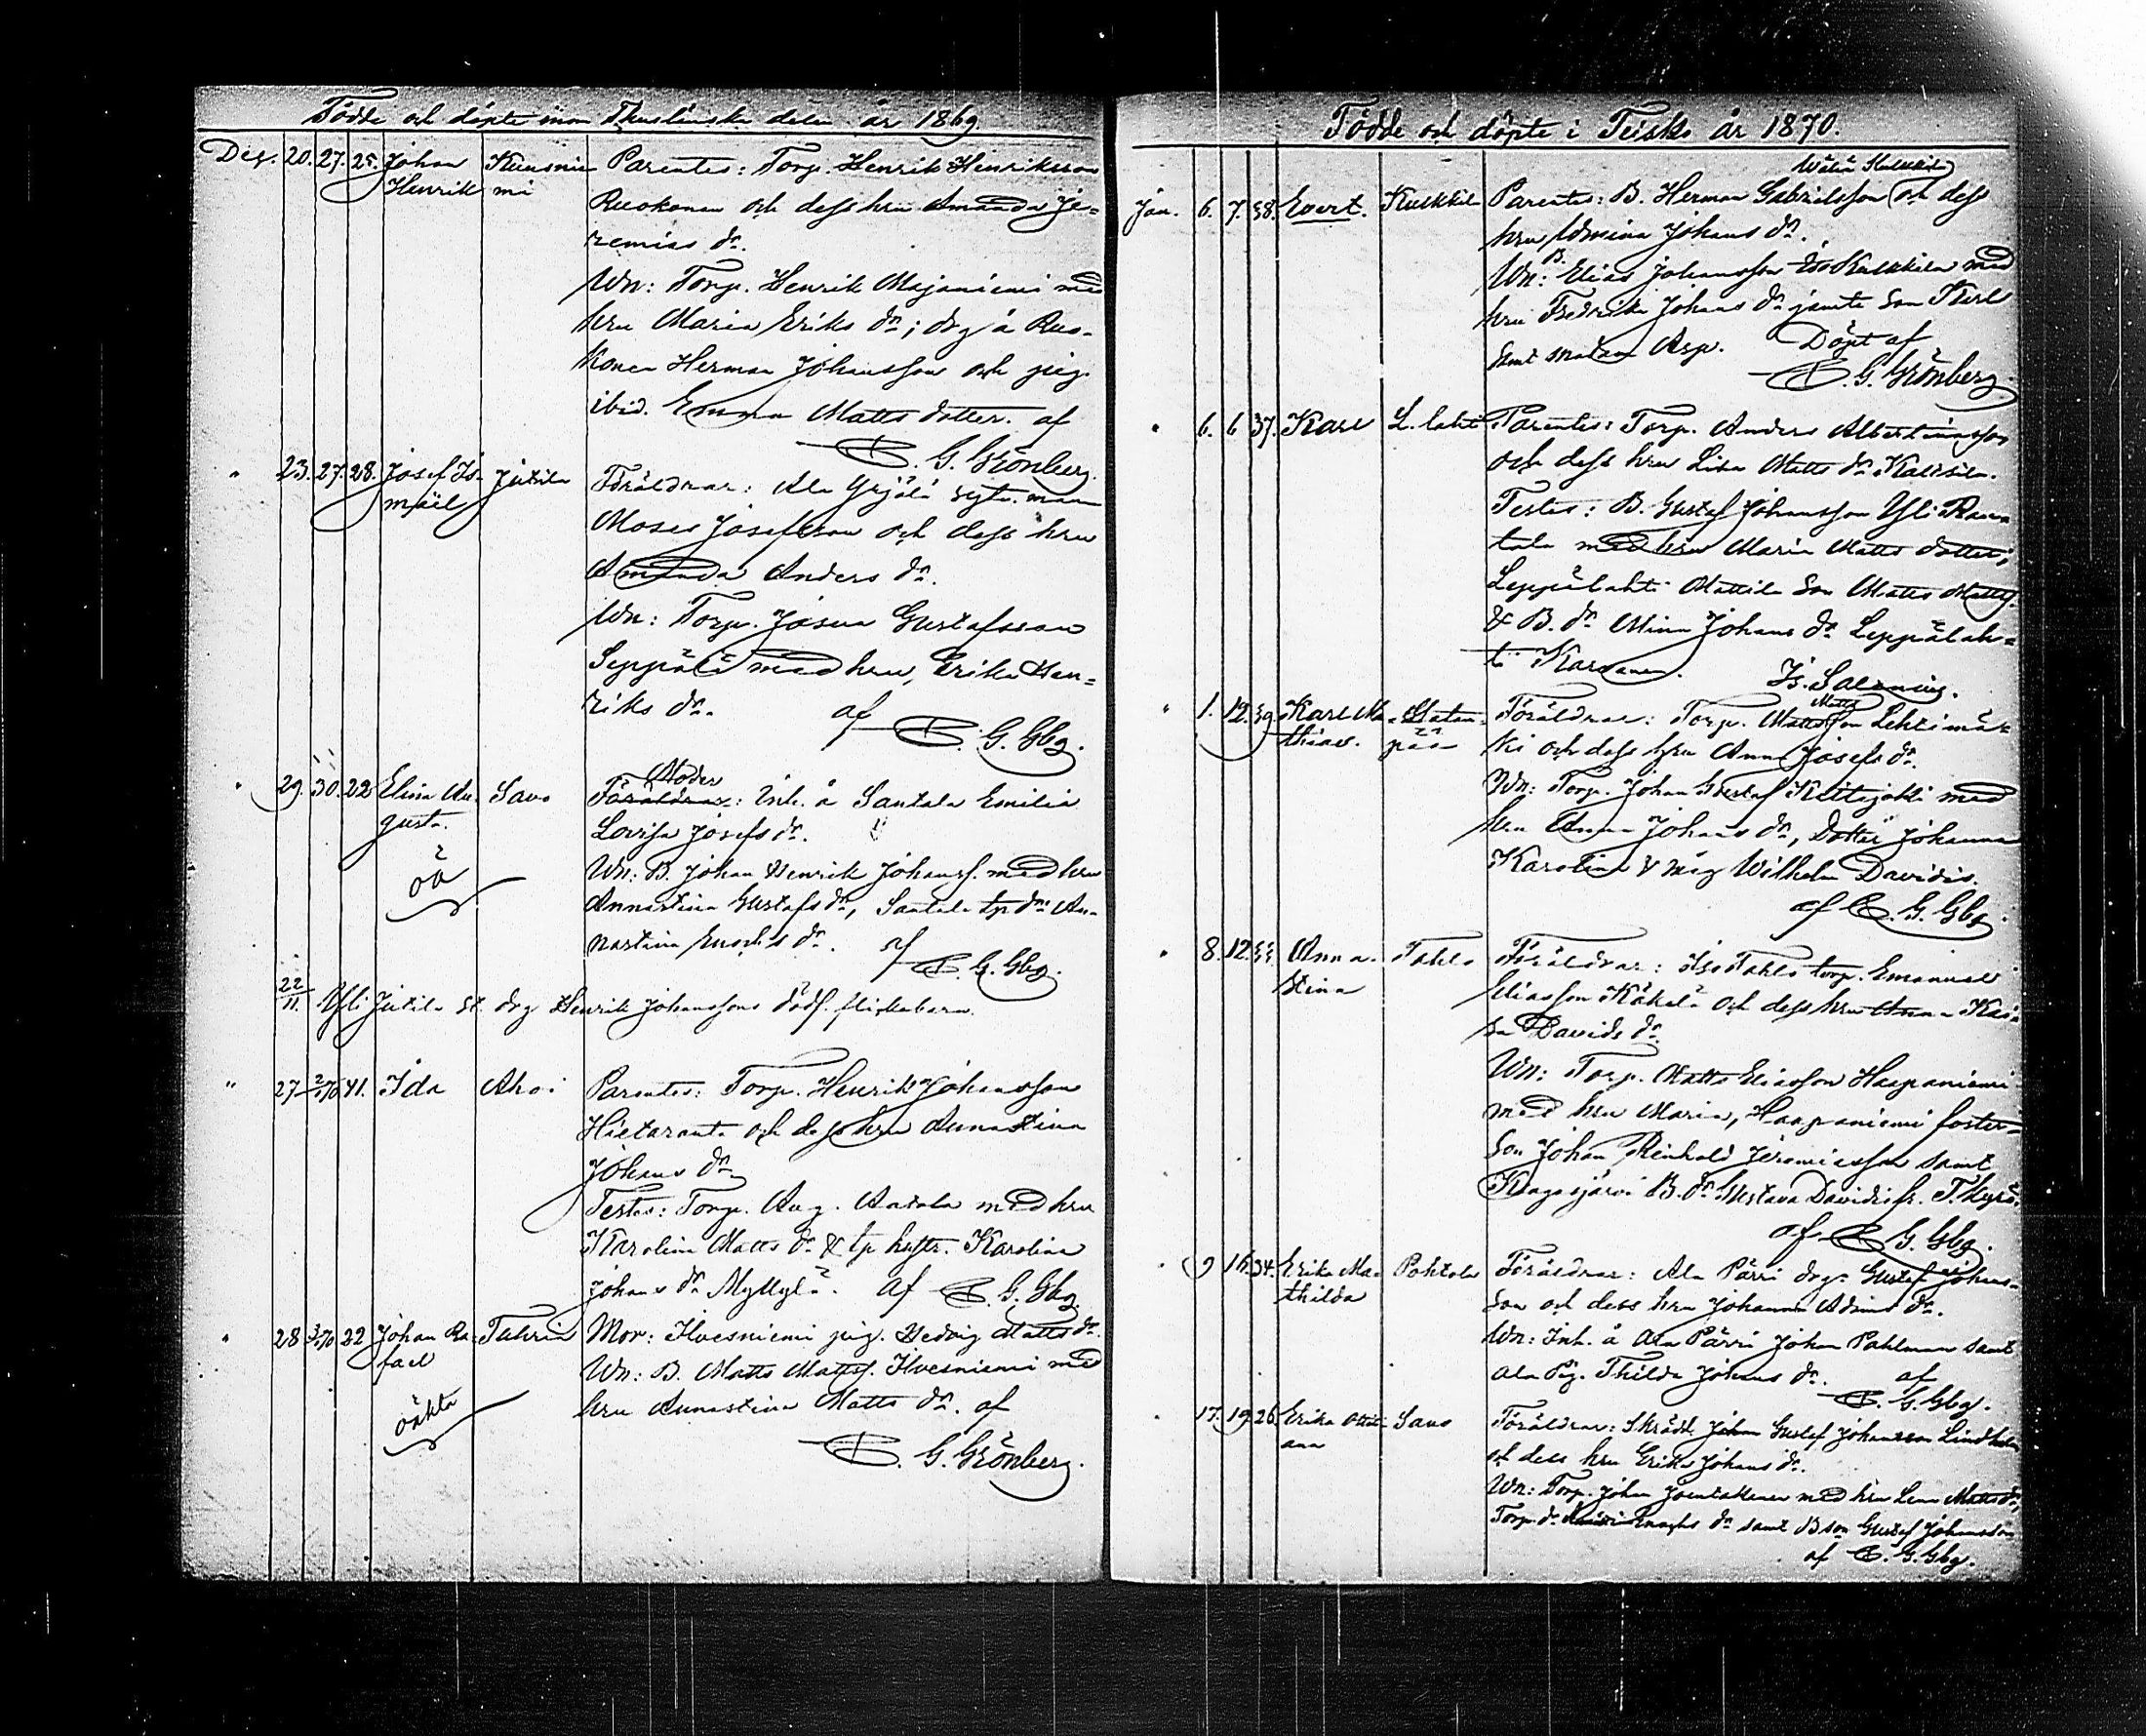 Födde och döpte inom Thuslänska delen år 1869
Dez. 20. 27. 25. Johan Henrik Kuusnie mi Parentes: Torp. Henrik Henriksson
Ruokonen och dess hru Amanda Je=
remias dr.
Wn: Torp. Henrik Majaniemi med
hru Maria Eriks dr; drg å Ruo-
konen Herman Johansson och pig.
ibid. Emma Matts dotter. af
G. Grönberg.
" 23. 27. 28. Josef Is- maël Jutila Föräldrar: Ala Yrjölä syt. man
Moses Josefsson och dess hru
Amanda Anders dr.
Wn: Torp. Josua Gustafsson
Seppälä med hru, Erika Hen=
riks dr. af
G. Gbg.
" 29. 30. 22 Elina Au- gusta. Savo Moder
Föräldrar: Inh. å Santala Emilia
Lovisa Josefs dr.
oä
Wn: B. Johan Henrik Johanss. med hru
Annastina Gustafs dr, Santala tp dr An-
nastina Enochs dr. af
G. Gbg.
22/11. Yli Jutila st. drg Henrik Johanssons dödf. flickebarn.
" 27 2/1 70 41. Ida Ahoi Parentes: Torp. Henrik Johansson
Hietaranta och dess hru Annastina
Johans dr
Testes: Torp. Aug. Aatala med hru
Karolina Matts dr & tp hustr. Karolina
Johans dr Myllylä. af G. Gbg.
" 28 3/1 70 22 Johan Ra- fael Tuhria Mor: Ilvesniemi pig. Hedvig Matts dr.
Wn: B. Matts Mattss. Ilvesniemi med
hru Annastina Matts dr. af
oäkta
G. Grönberg.
Födde och döpte i Teisko år 1870.
Wälä Kulkkila
Jan. 6. 7. 38. Evert. Kulkkila Parentes: B. Herman Gabrielsson och dess
hru Wilmina Johans dr.
Wn: B. Elias Johansson Iso Kulkkila med
hru Fredrika Johans dr jemte son Karl
samt Asp. Döpt af
G. Grönberg.
" 6. 6 37. Karl L. lahti Parentes: Torp. Anders Albertinsson
och dess hru Lisa Matts dr
Testes: B. Gustaf Johansson Yli Ran
tala med hru Maria Matts dotter;
Leppälahti Mattila son Matts Mattss.
& B. dr Mina Johans dr Leppälah=
ti
Is. Salenius.
" 1. 12. 39. Karl Ma- thias. pää Föräldrar: Torp. Matts Mattsson Lehtimä-
ki och dess hru Anna Josefs dr.
Wn: Torp. Johan Gustaf med
hru Anna Johans dr, Dotter Johanna
Karolina & måg Wilhelm Davidss.
af G. Gbg.
" 8. 12. 33. Anna- stina Tahlo Föräldrar: Iso Tahlo torp. Emanuel
Eliasson Käkelä och dess hru Anna Kai-
sa Davids dr.
Wn: Torp. Matts Eliasson Haapaniemi
med hru Maria, Haapaniemi foster=
son Johan Reinhold Jeremiasson samt
B. dr Gustava Davids fr. T. kyrö.
af G. Gbg.
" 9 16. 34. Erika Ma- thilda Pohtola Föräldrar: Ala Pärri drg. Gustaf Johans-
son och dess hru Johanna Adams dr.
Wn: Inh. å Ala Pärri Johan Pahlman samt
Ala Pig. Thilda Johans dr. af
G. Gbg.
" 17. 19. 26. Erika Savo Föräldrar: Skrädd. Johan Gustaf Johansson Lindholm
och dess hru Erika Johans dr.
Wn: Torp. Johan med hru Lena Matts dr,
Torp. dr Enochs dr samt B son Gustaf Johansson
af G. Gbg.